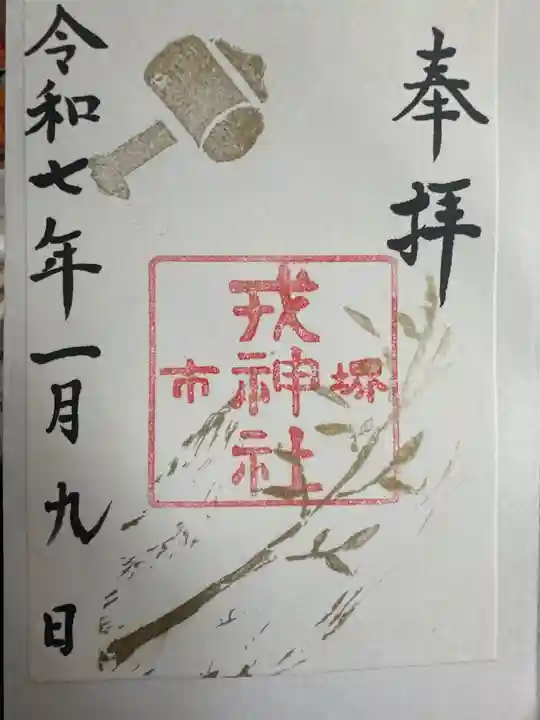 奉拝
堺
戎神社
市
令和七年一月九日